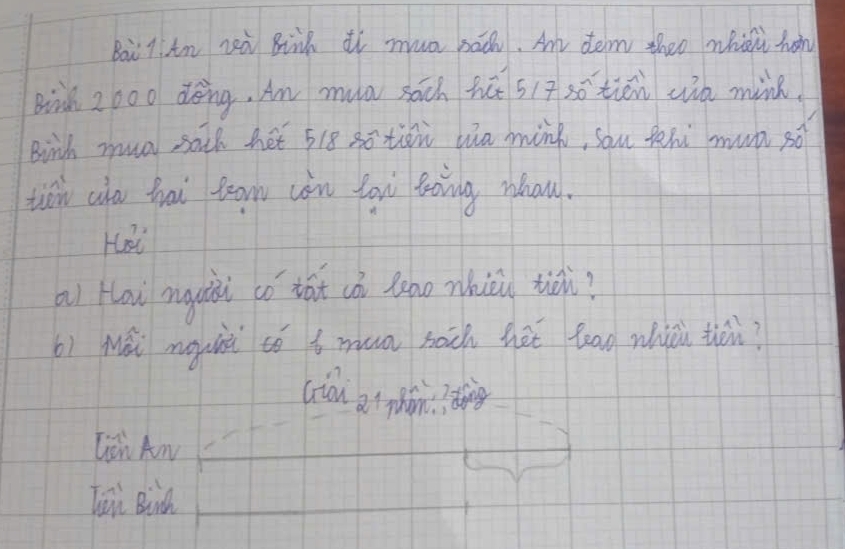 Bài 1: An và Bình đi mua sách. An đem theo nhiều hơn
Bình 2000 đồng. An mua sách hết 5/7 số tiền của mình.
Bình mua sách hết 5/8 số tiền của mình, sau khi mua số
tiền của hai bạn còn lại bằng nhau.
Hỏi
a) Hai người có tất cả bao nhiêu tiền?
b) Mỗi người có mua sách hết bao nhiêu tiền?
Giải
21 phần: ? đồng
Tiền An
Tiền Bình